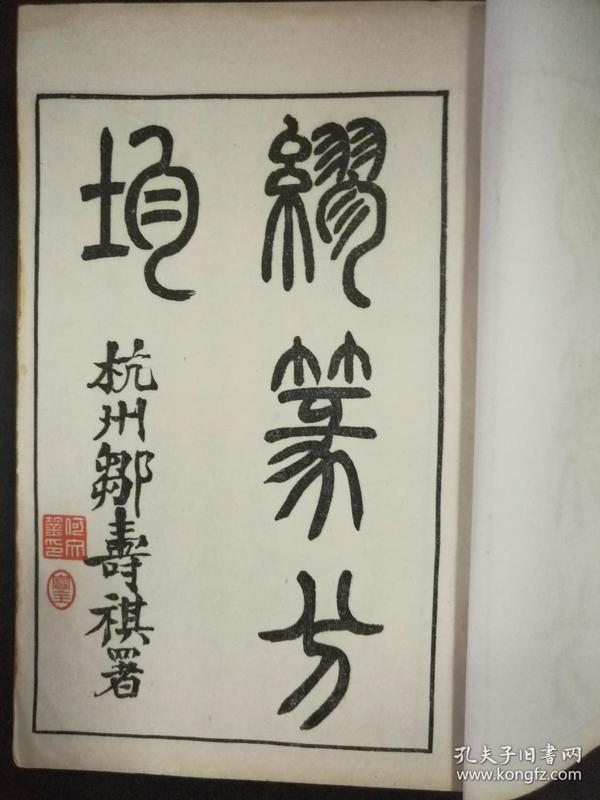 繆篆分
均
杭州鄒壽祺署
孔夫子旧书网
www.kongfz.com